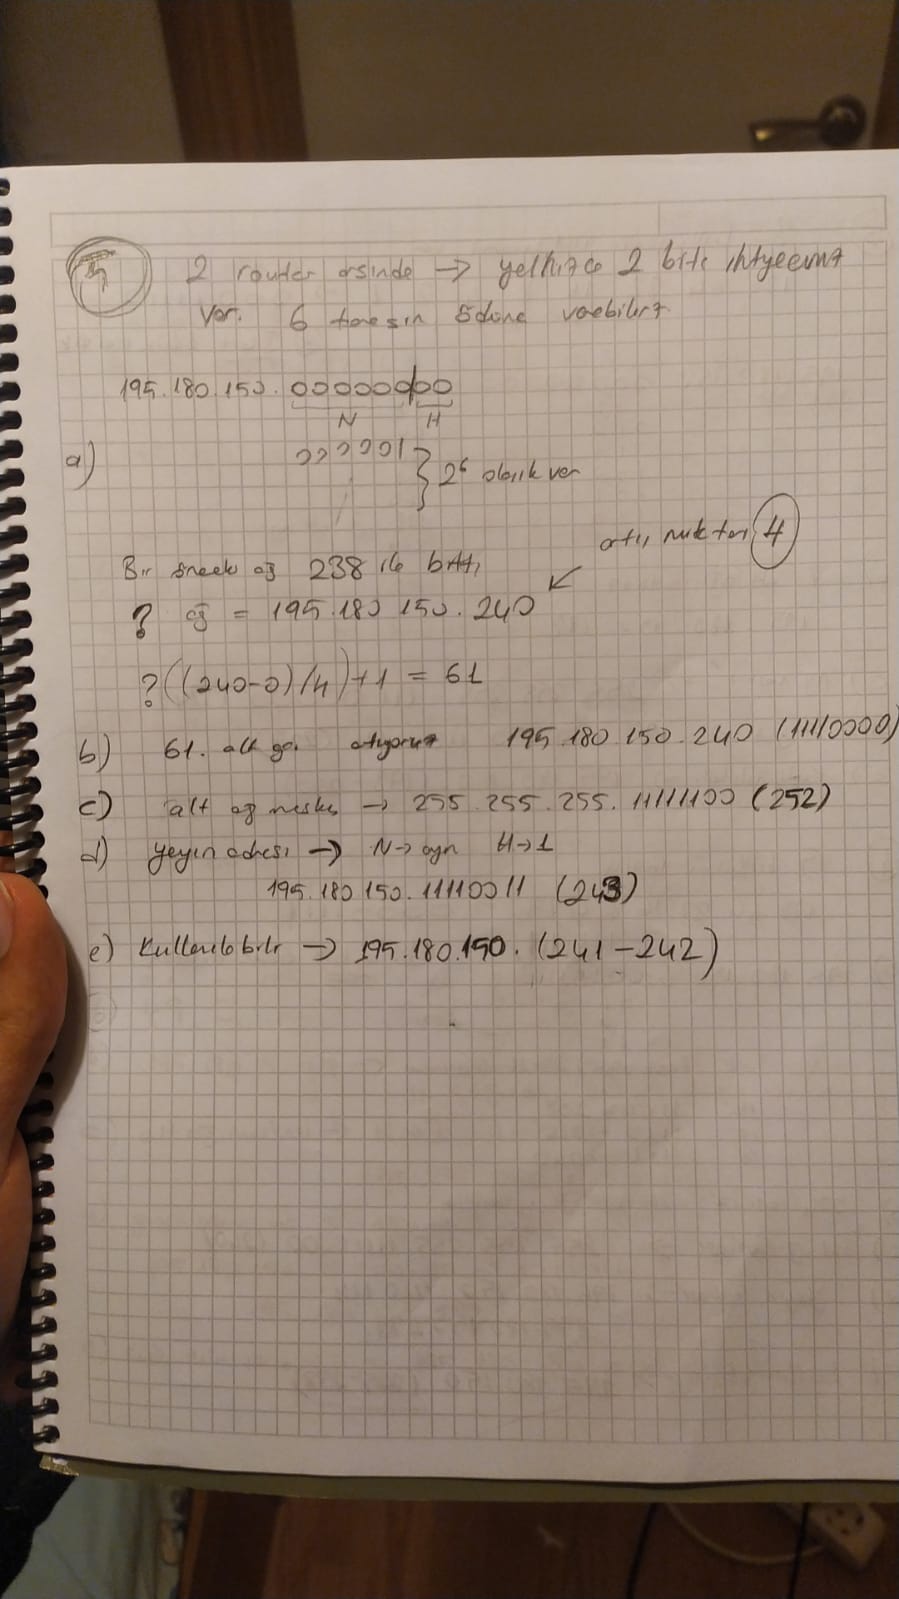 5) 2 router arsinde → yalnızca 2 bite ihtyacımz
var. 6 tanesin ödünc verebilirz
195.180.150.00000000
N H
a) 000001 } 2⁶ olasılık var
Bir önceki ağ 238 ile bitti
artış miktarı 4
? ağ = 195.180.150.240
? ((240-0)/4)+1 = 61
b) 61. alt ağı atıyoruz 195.180.150.240 (11110000)
c) alt ağ maske → 255.255.255.11111100 (252)
d) yayın adresi → N→ayn H→1
195.180.150.11110011 (243)
e) Kullanılabilr → 195.180.150.(241-242)